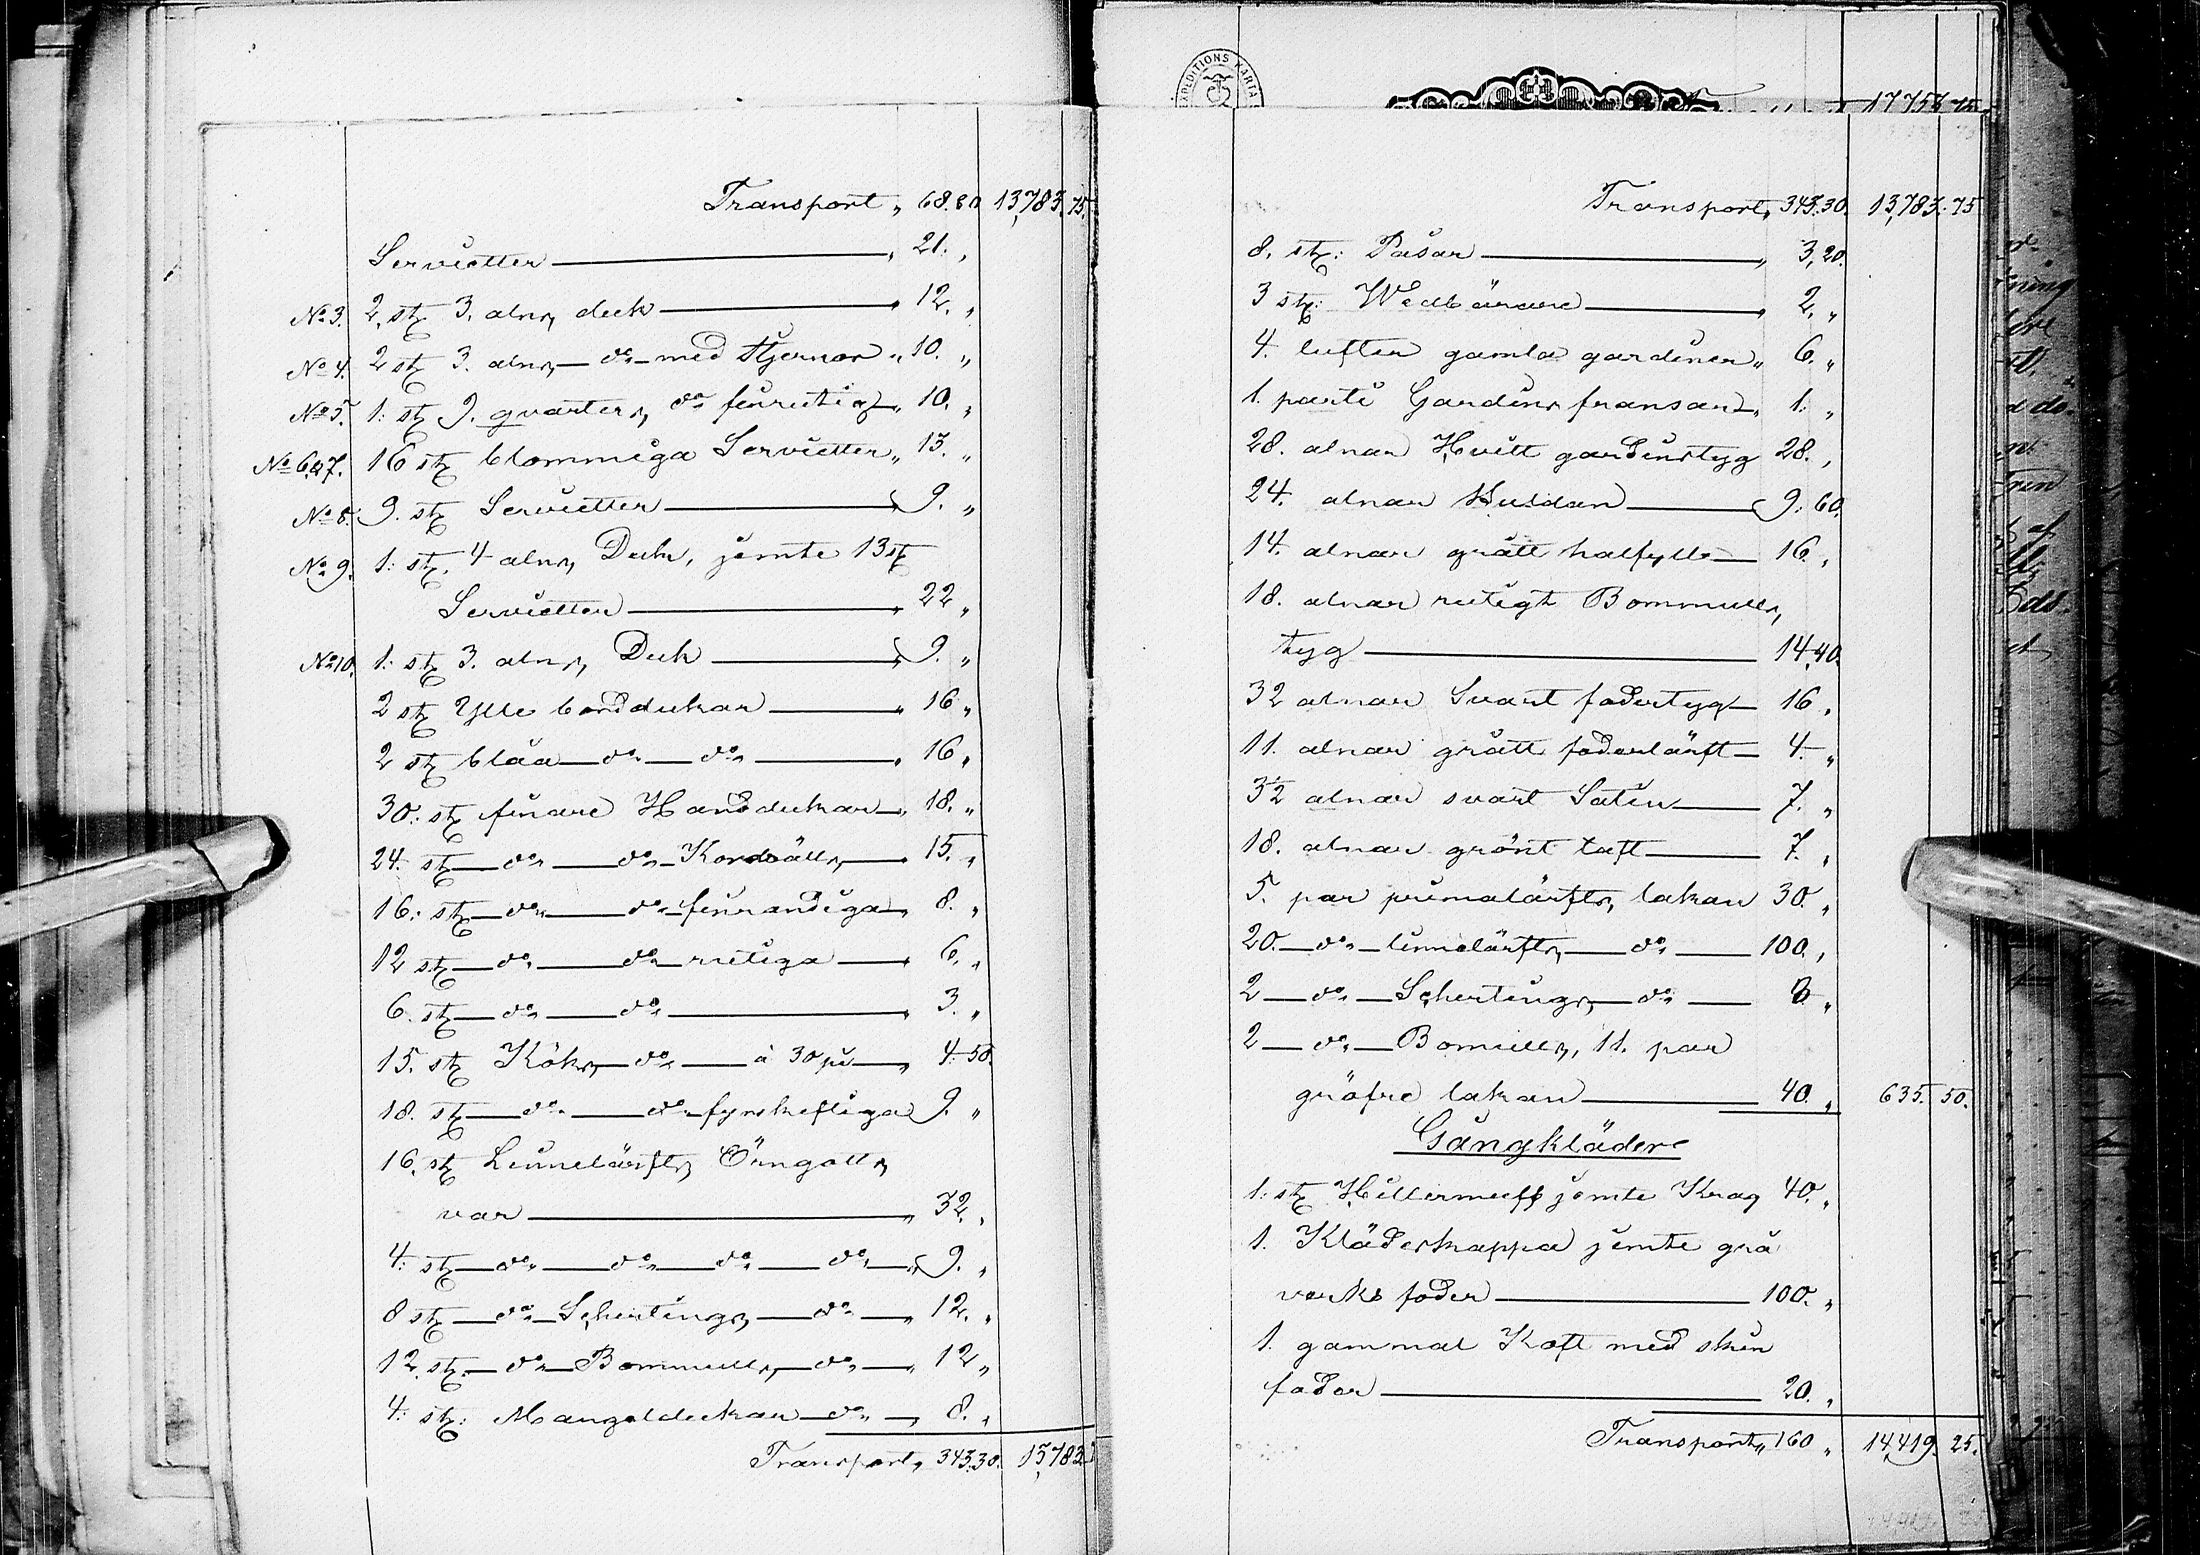 Transport „ 68.80 13,783.75.
Servietter „ 21. „
No 3. 2. st. 3. alns, duk „ 12. „
No 4. 2 st. 3. alns, do med Stjernor „ 10. „
No 5. 1: st. 9. qvarters, do finrutig „ 10. „
No 6,&7. 16 st. blommiga Servietter „ 13. „
No 8. 9. st. Servietter „ 9. „
No 9. 1: st. 4 alns, Duk, jemte 13 st.
Servietter „ 22 „
No 10. 1: st. 3. alns, Duk „ 9. „
2 st. Ylle borddukar „ 16 „
2 st. blåa do do „ 16 „
30: st. finare Handdukar „ 18. „
24. st. do do Kordsälls, „ 15. „
16: st. do do finrandiga „ 8. „
12 st. do do rutiga „ 6. „
6. st. do do „ 3. „
15. st. Köks, do à 30 „ 4.50.
18. st. do do fyrskeftiga 9. „
16. st. Linnelärfts, Örngotts,
var „ 32. „
4: st. do do do do „ 9. „
8 st. do Schertings, do „ 12. „
12. st. do Bommulls, do „ 12 „
4: st: Mangeldukar do „ 8. „
Transport „ 343.30. 13,783.
EXPEDITIONS KARTA
17758 75
Transport „ 343.30. 13,783.75
8. st: Påsar „ 3,20.
3 st: Wedbärare „ 2. „
4. lufter gamla gardiner „ 6. „
1. parti Gardins fransar „ 1: „
28. alnar Hvitt gardinstyg 28. „
24. alnar Buldan 9:60.
14. alnar grått halfylle 16. „
18. alnar rutigt Bommulls,
tyg 14,40.
32 alnar Svart fodertyg 16. „
11. alnar grått foderlärft 4. „
3½ alnar svart Satin 7. „
18. alnar grönt taft 7. „
5. par primalärfts, lakan 30. „
20. do linnelärfts, do 100. „
2 do Schertings, do 8 „
2 do Bomulls, 11. par
gröfre lakan 40. „ 635.50.
Gångkläder
1: st. Hillermuff jemte Krag 40. „
1. Klädeskappa jemte grå
verks foder 100. „
1. gammal Koft med skin
foder 20. „
Transport „ 160 „ 14,419.25.